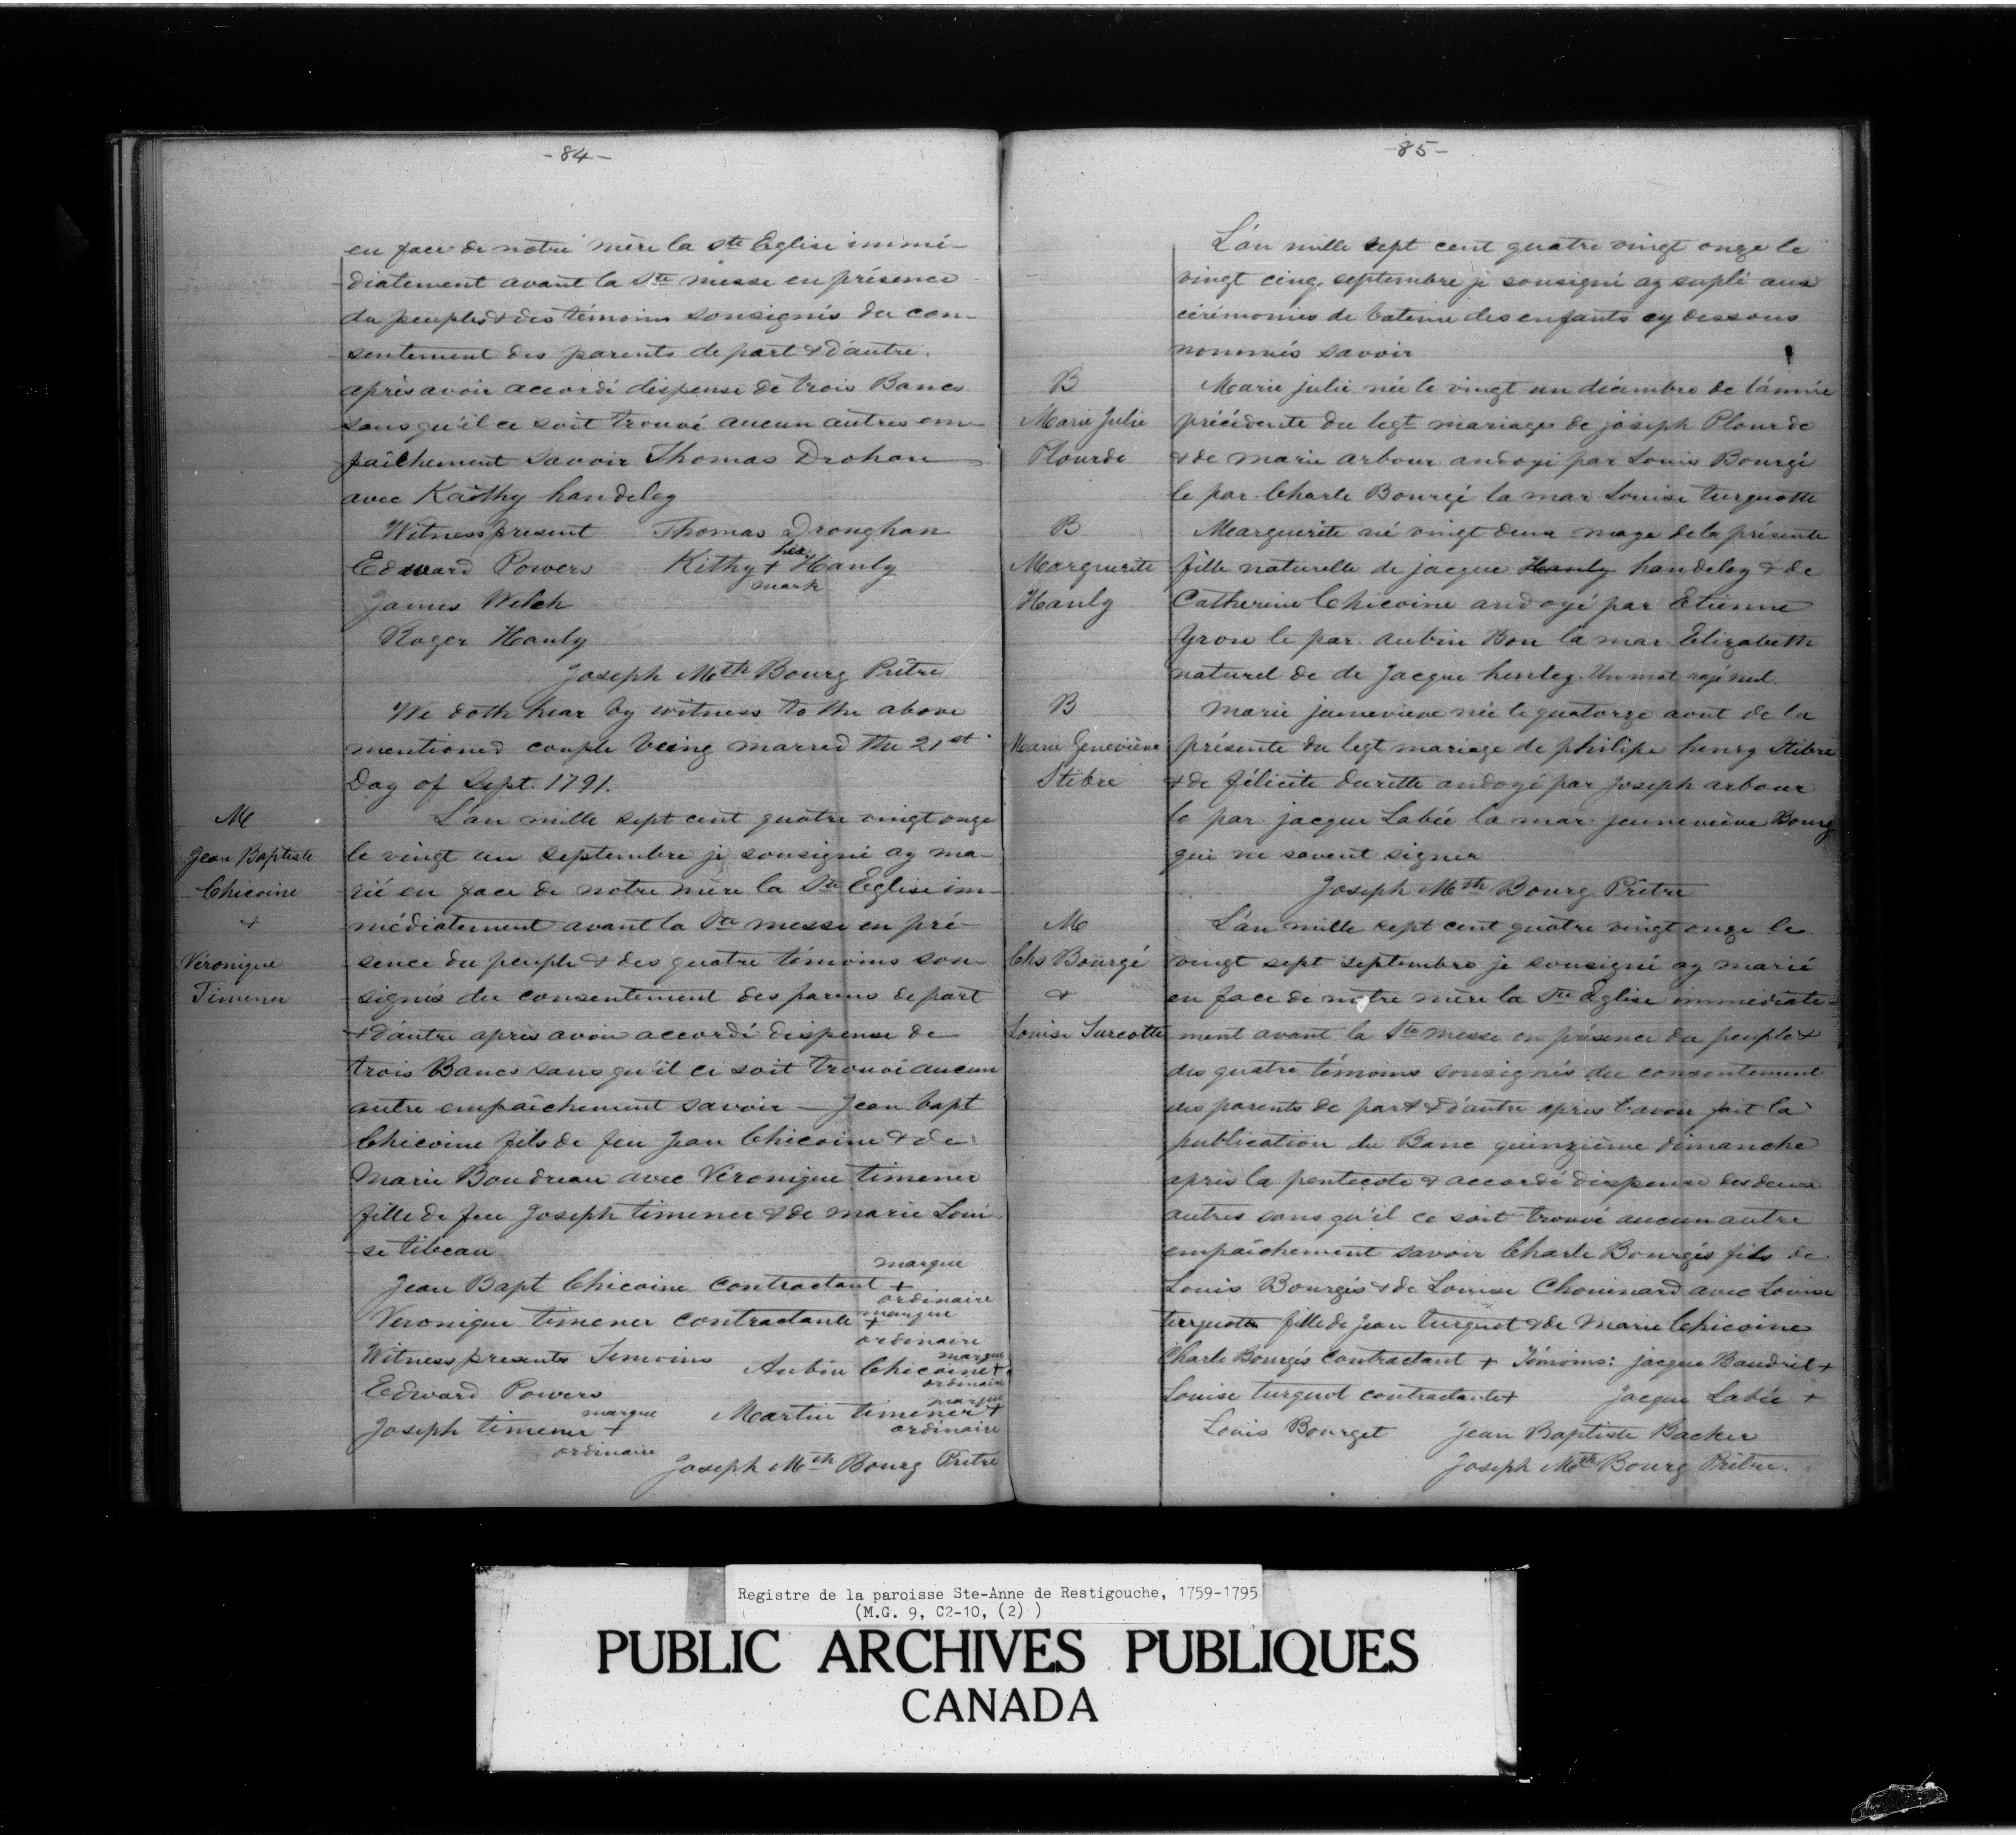 -84-
en face de notre mère la Ste Eglise immé-
diatement avant la Ste messe en présence
du peuple & des témoins sousignés du con-
sentement des parents de part & d'autre.
après avoir accordé dispense de trois Bancs
sans qu'il ce soit trouvé aucun autres em-
paîchement savoir Thomas Drohan
avec Kaithy handeley
Witness present Thomas Droughan
Edward Powers Kithy + Hanly
her
mark
James Welch
Roger Hanly
Joseph Mth Bourg Prêtre
We doth hear by witness to the above
mentioned couple being marred the 21st
Day of Sept. 1791.
M
Jean Baptiste
Chicoine
&
Véronique
Timener
L'an mille sept cent quatre vingt onze
le vingt un septembre je sousigné ay ma-
rié en face de notre mère la Ste Eglise im-
médiatement avant la Ste messe en pré-
sence du peuple & des quatre témoins sou-
signés du consentement des parens de part
& d'autre après avoir accordé dispense de
trois Bancs sans qu'il ce soit trouvé aucun
autre empaîchement savoir — Jean bapt
Chicoine fils de feu Jean Chicoine & de
Marie Boudreau avec Véronique timener
fille de feu Joseph timener & de marie Loui-
se tibeau
Jean Bapt Chicoine contractant + marque ordinaire
Veronique timener contractante + marque ordinaire
Witness presents Temoins Aubin Chicoine + marque ordinaire
Edward Powers
Joseph timener + marque ordinaire Martin timener + marque ordinaire
Joseph Mth Bourg Prêtre
-85-
L'an mille sept cent quatre vingt onze le
vingt cinq septembre je sousigné ay suplé aux
cérémonies de bateme des enfants cy dessous
nommés savoir
B
Marie Julie
Plourde
Marie julie née le vingt un décembre de l'année
précédente du legt mariage de joseph Plourde
& de marie arbour andoyé par Louis Bourgé
le par. Charle Bourgé la mar. Louise turquotte
B
Marguerite
Hanly
Marguerite né vingt deux maye de la présente
fille naturelle de jacque Hanly handeley & de
Catherine Chicoine andoyé par Etienne
yron le par. aubin Bon la mar. Elizabeth
naturel de de Jacque henley. Un mot rajé nul.
B
Marie Geneviève
Stibre
Marie jenevieve née le quatorze aout de la
présente du legt mariage de philipe henry Stibre
& de félicité durette andoyé par Joseph arbour
le par. jacque Labée la mar. jenneviève Bourg
qui ne savent signer
Joseph Mth Bourg Prêtre
M
Chs Bourgé
&
Louise Turcotte
L'an mille sept cent quatre vingt onze le
vingt sept septembre je sousigné ay marié
en face de notre mère la Ste Eglise immédiate-
ment avant la Ste messe en présence du peuple &
des quatre témoins sousignés du consentement
des parents de part & d'autre après l'avoir fait la
publication du Banc quinzième dimanche
après la pentecote & accordé dispense des deux
autres sans qu'il ce soit trouvé aucun autre
empaîchement savoir Charle Bourgés fils de
Louis Bourgés & de Louise Chouinard avec Louise
turquote fille de Jean turquot & de Marie Chicoine
Charle Bourgés contractant + Témoins: jacque Baudril +
Louise turquot contractante + Jacque Labée +
Louis Bourget Jean Baptiste Backer
Joseph Mth Bourg Prêtre.
Registre de la paroisse Ste-Anne de Restigouche, 1759-1795
(M.G. 9, C2-10, (2) )
PUBLIC ARCHIVES PUBLIQUES
CANADA